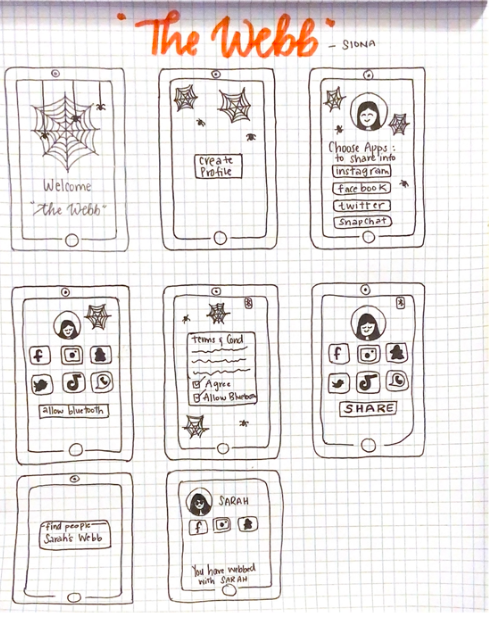 "The Webb" - SIONA
Welcome
"The Webb"
Create
Profile
Choose Apps :
to share info
instagram
facebook
twitter
snapchat
allow bluetooth
Terms & Cond
Agree
Allow Bluetooth
SHARE
find people
Sarah's Webb
SARAH
You have webbed
with SARAH